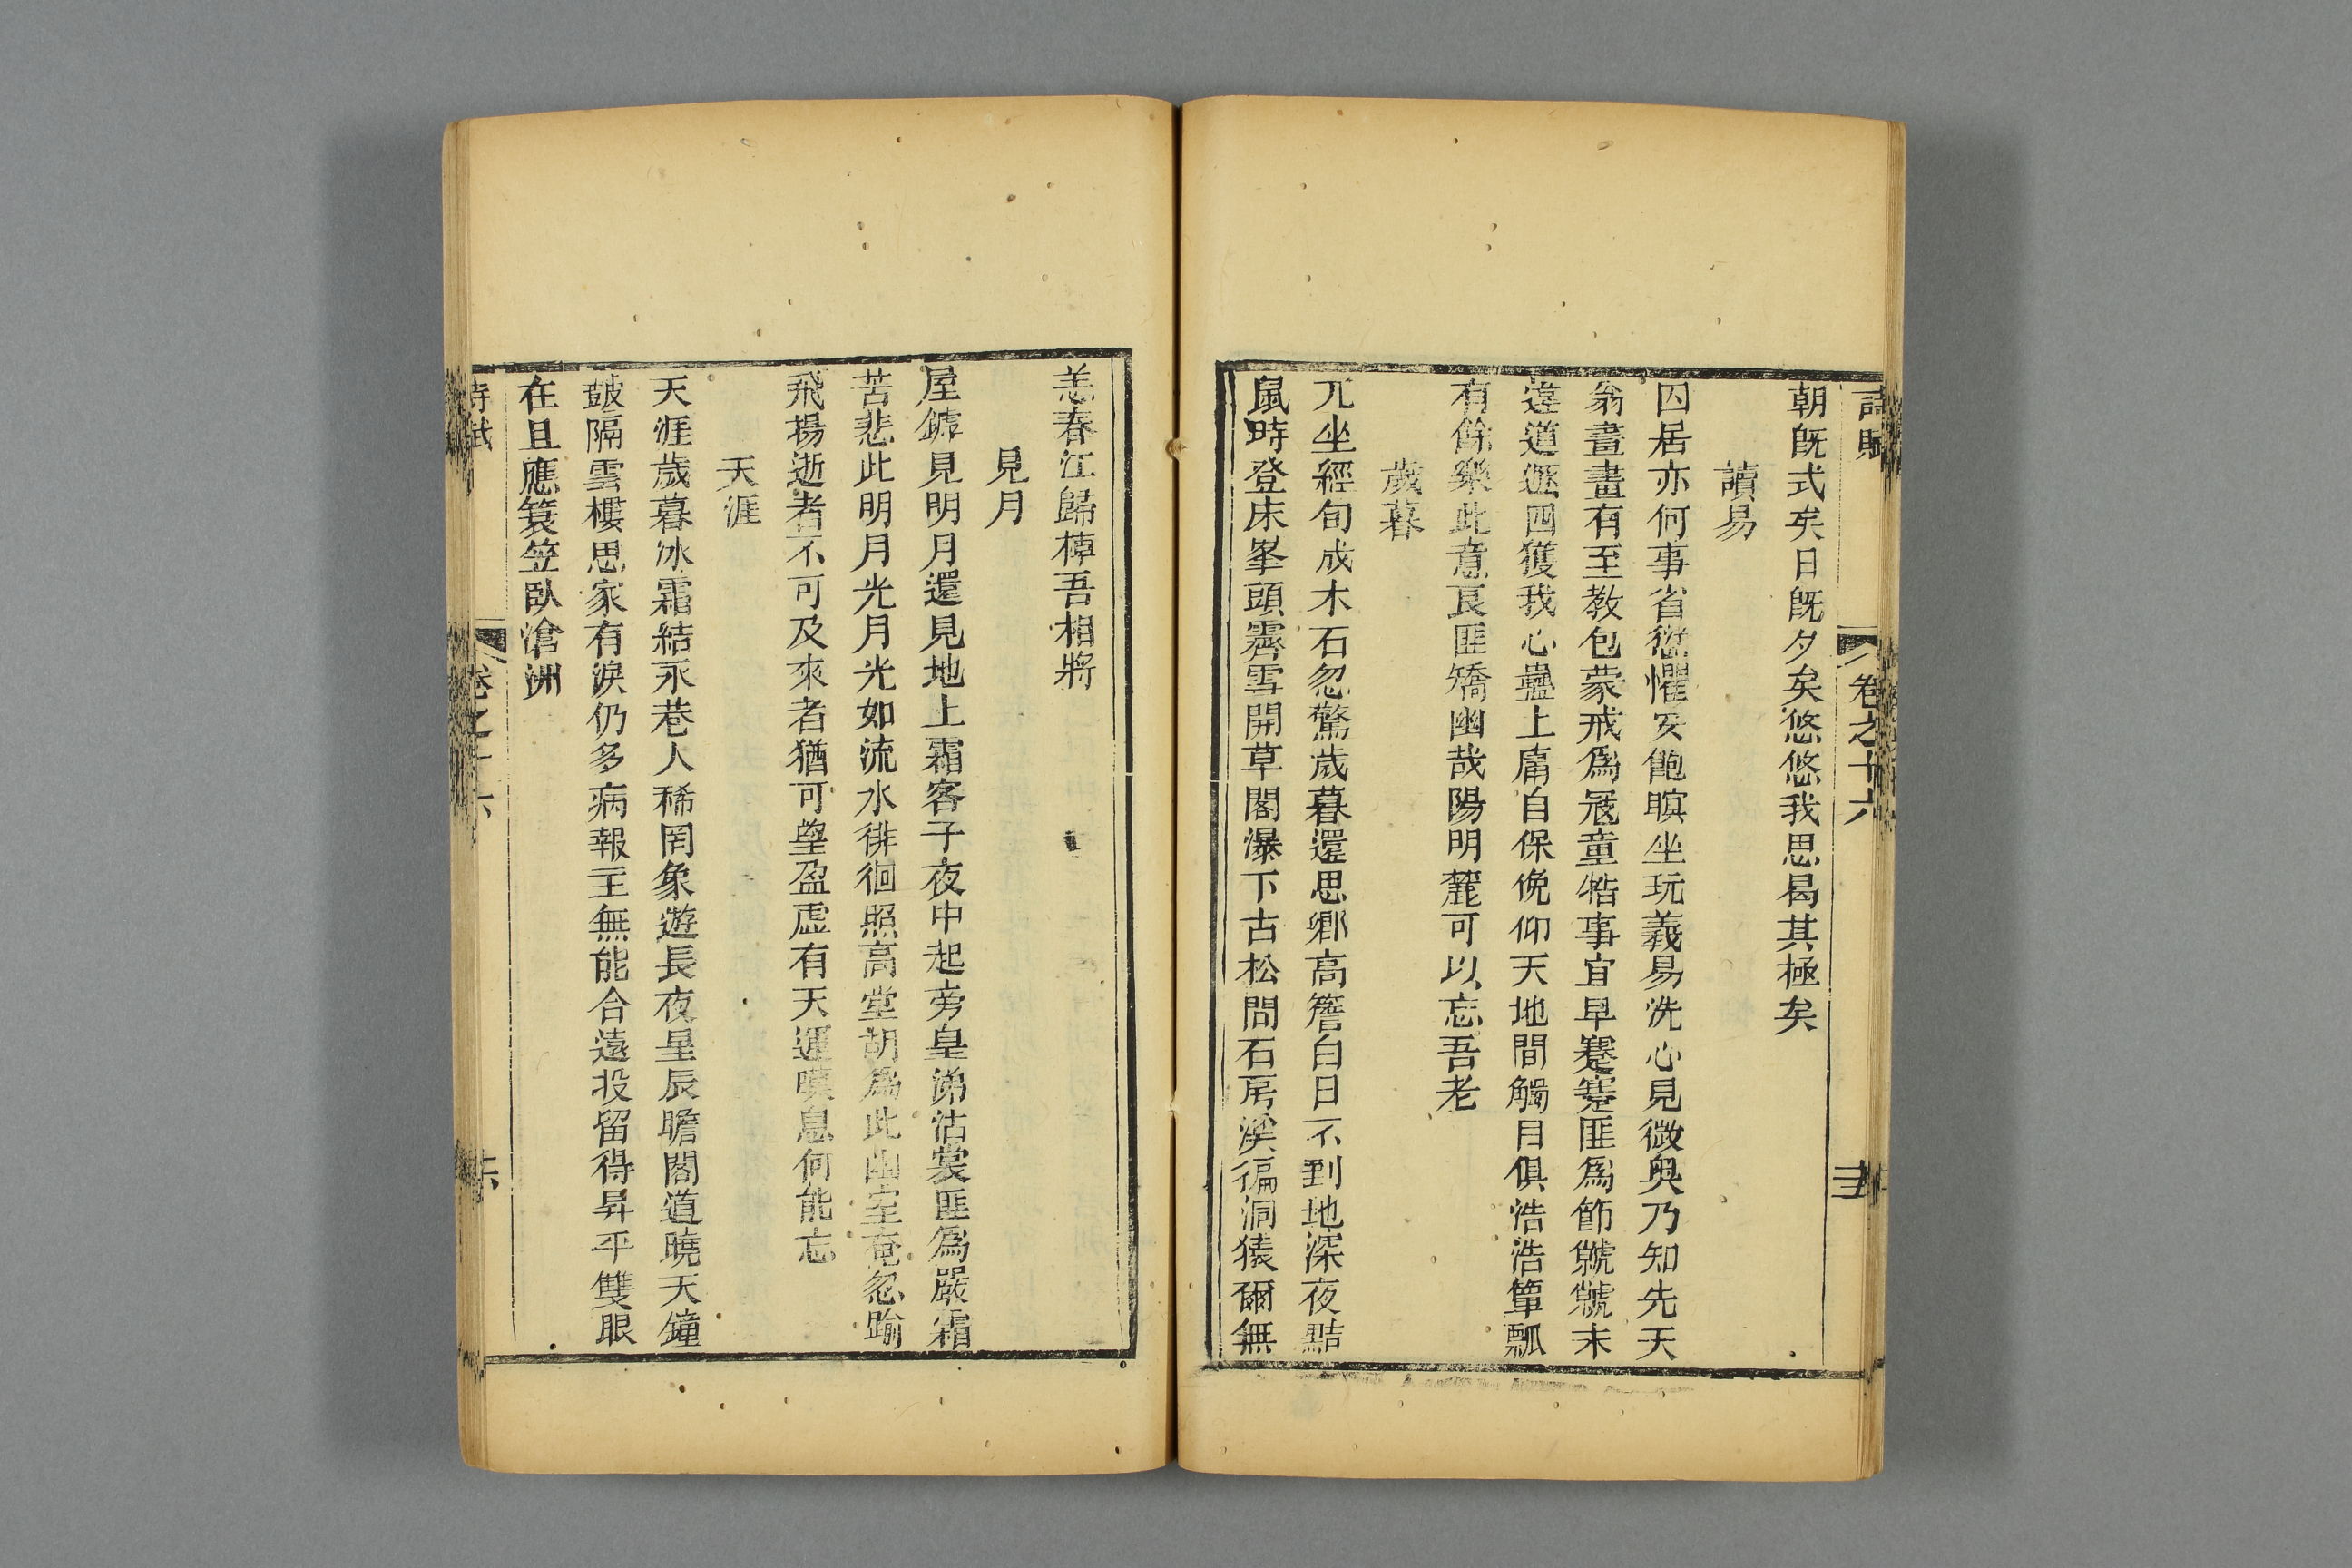 詩賦 卷之十六
朝旣式矣日旣夕矣悠悠我思曷其極矣
讀易
囚居亦何事省愆懼安飽瞑坐玩羲易洗心見微奧乃知先天
翁畫畫有至教包蒙戒爲寇童牿事宜早蹇蹇匪爲節虩虩未
違道遯四獲我心蠱上庸自保俛仰天地間觸目俱浩浩簞瓢
有餘樂此意良匪矯幽哉陽明麓可以忘吾老
歲暮
兀坐經旬成木石忽驚歲暮還思鄉高簷白日不到地深夜黠
鼠時登床峯頭霽雪開草閣瀑下古松問石房溪徧洞猿爾無
恙春江歸棹吾相將
見月
屋罅見明月還見地上霜客子夜中起旁皇涕沾裳匪爲嚴霜
苦悲此明月光月光如流水徘徊照高堂胡爲此幽室奄忽踰
飛揚逝者不可及來者猶可望盈虛有天運嘆息何能忘
天涯
天涯歲暮冰霜結永巷人稀罔象遊長夜星辰瞻閣道曉天鐘
皷隔雲樓思家有淚仍多病報主無能合遠投留得昇平雙眼
在且應簑笠臥滄洲
卷之十六